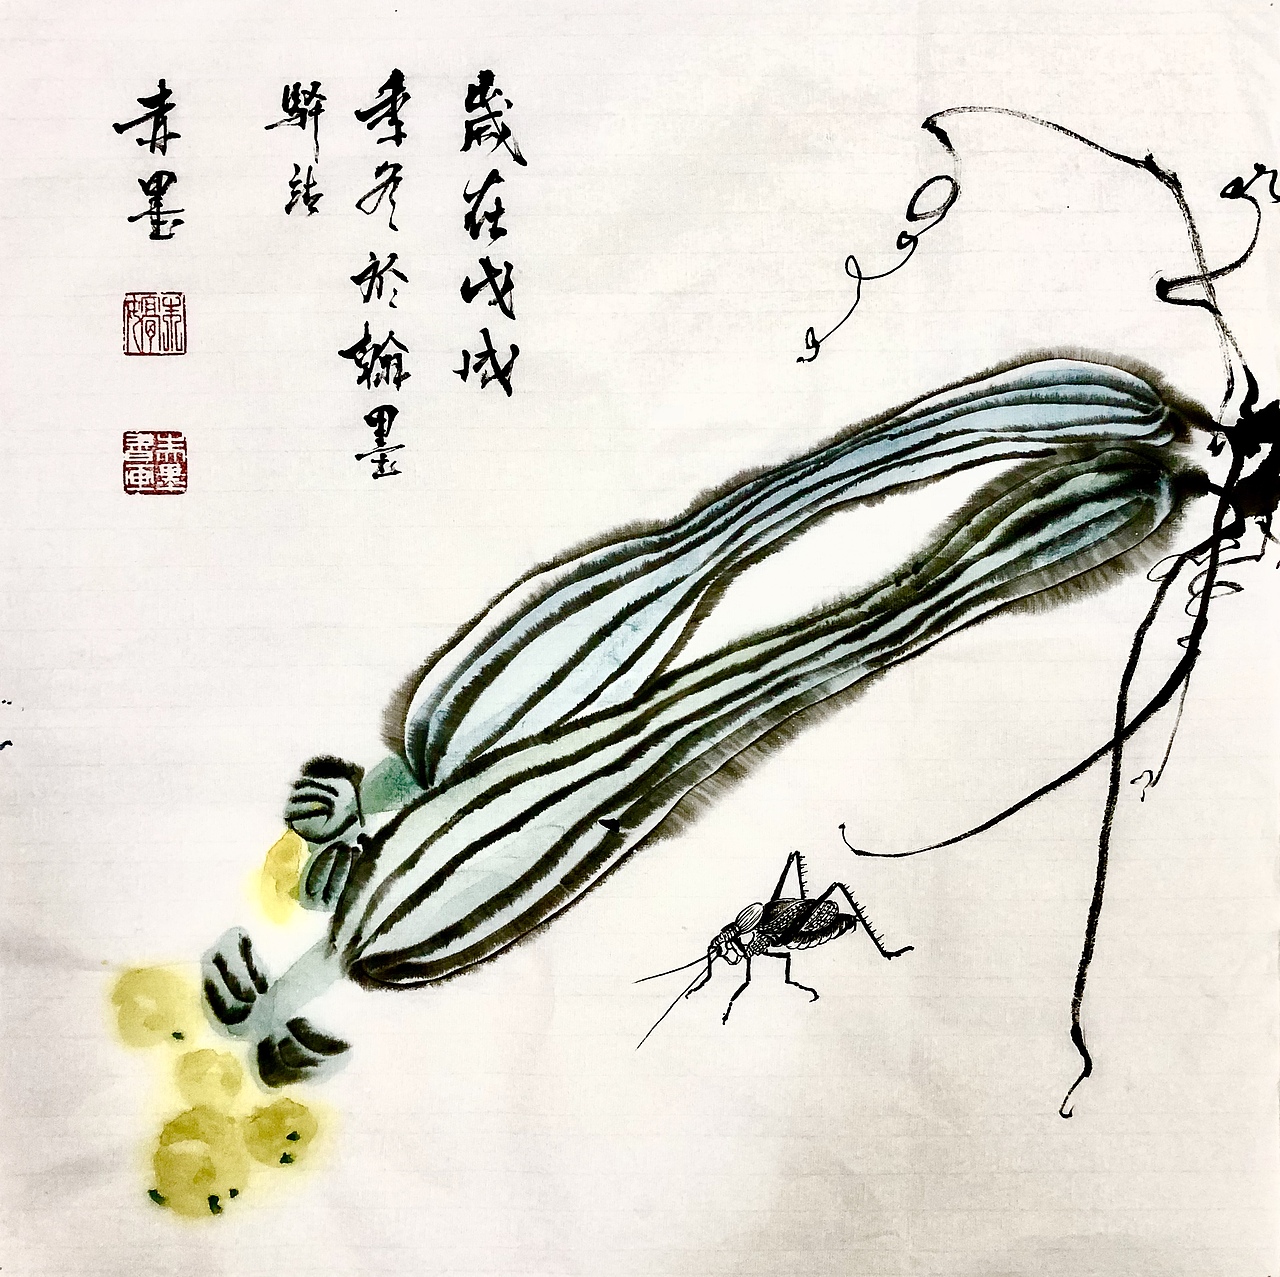 歲在戊戌
季冬於翰墨
驛站
赤墨
赤墨
書画